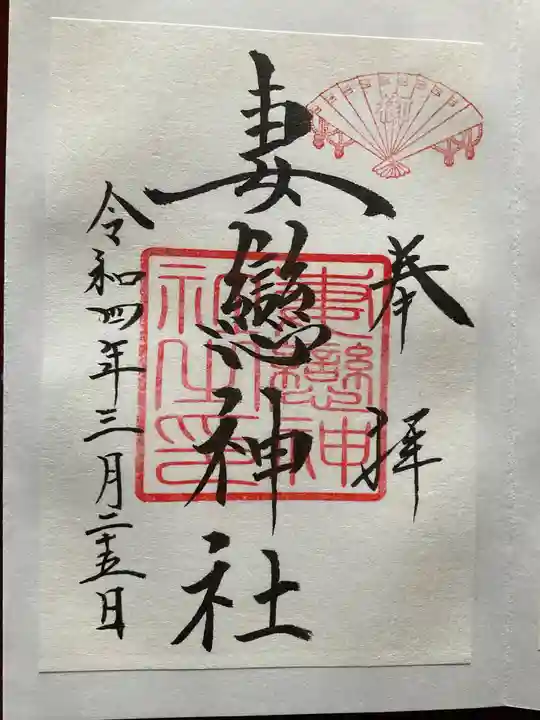 奉拝
妻戀神社
令和四年三月二十五日
妻戀神社之印